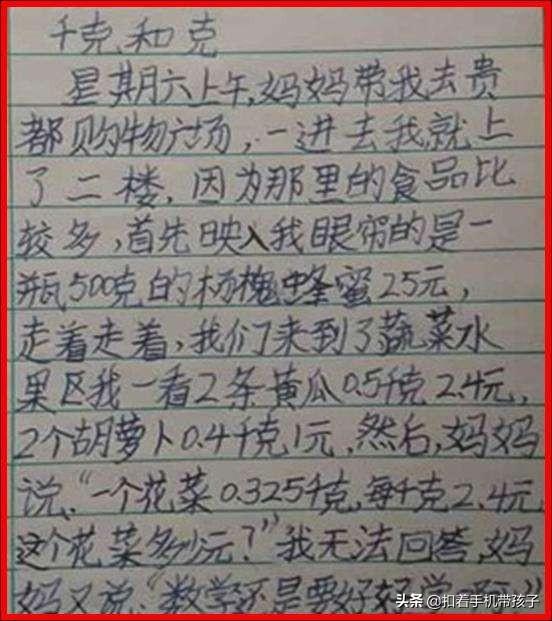 千克和克
星期六上午,妈妈带我去贵
都购物广场,一进去我就上
了二楼,因为那里的食品比
较多,首先映入我眼帘的是一
瓶500克的杨槐蜂蜜25元,
走着走着,我们来到了蔬菜水
果区我一看2条黄瓜0.5千克2.4元,
2个胡萝卜0.4千克1元.然后,妈妈
说“一个花菜0.325千克,每千克2.4元
这个花菜多少元?”我无法回答,妈
妈又说“数学还是要好好学
头条 @扣着手机带孩子